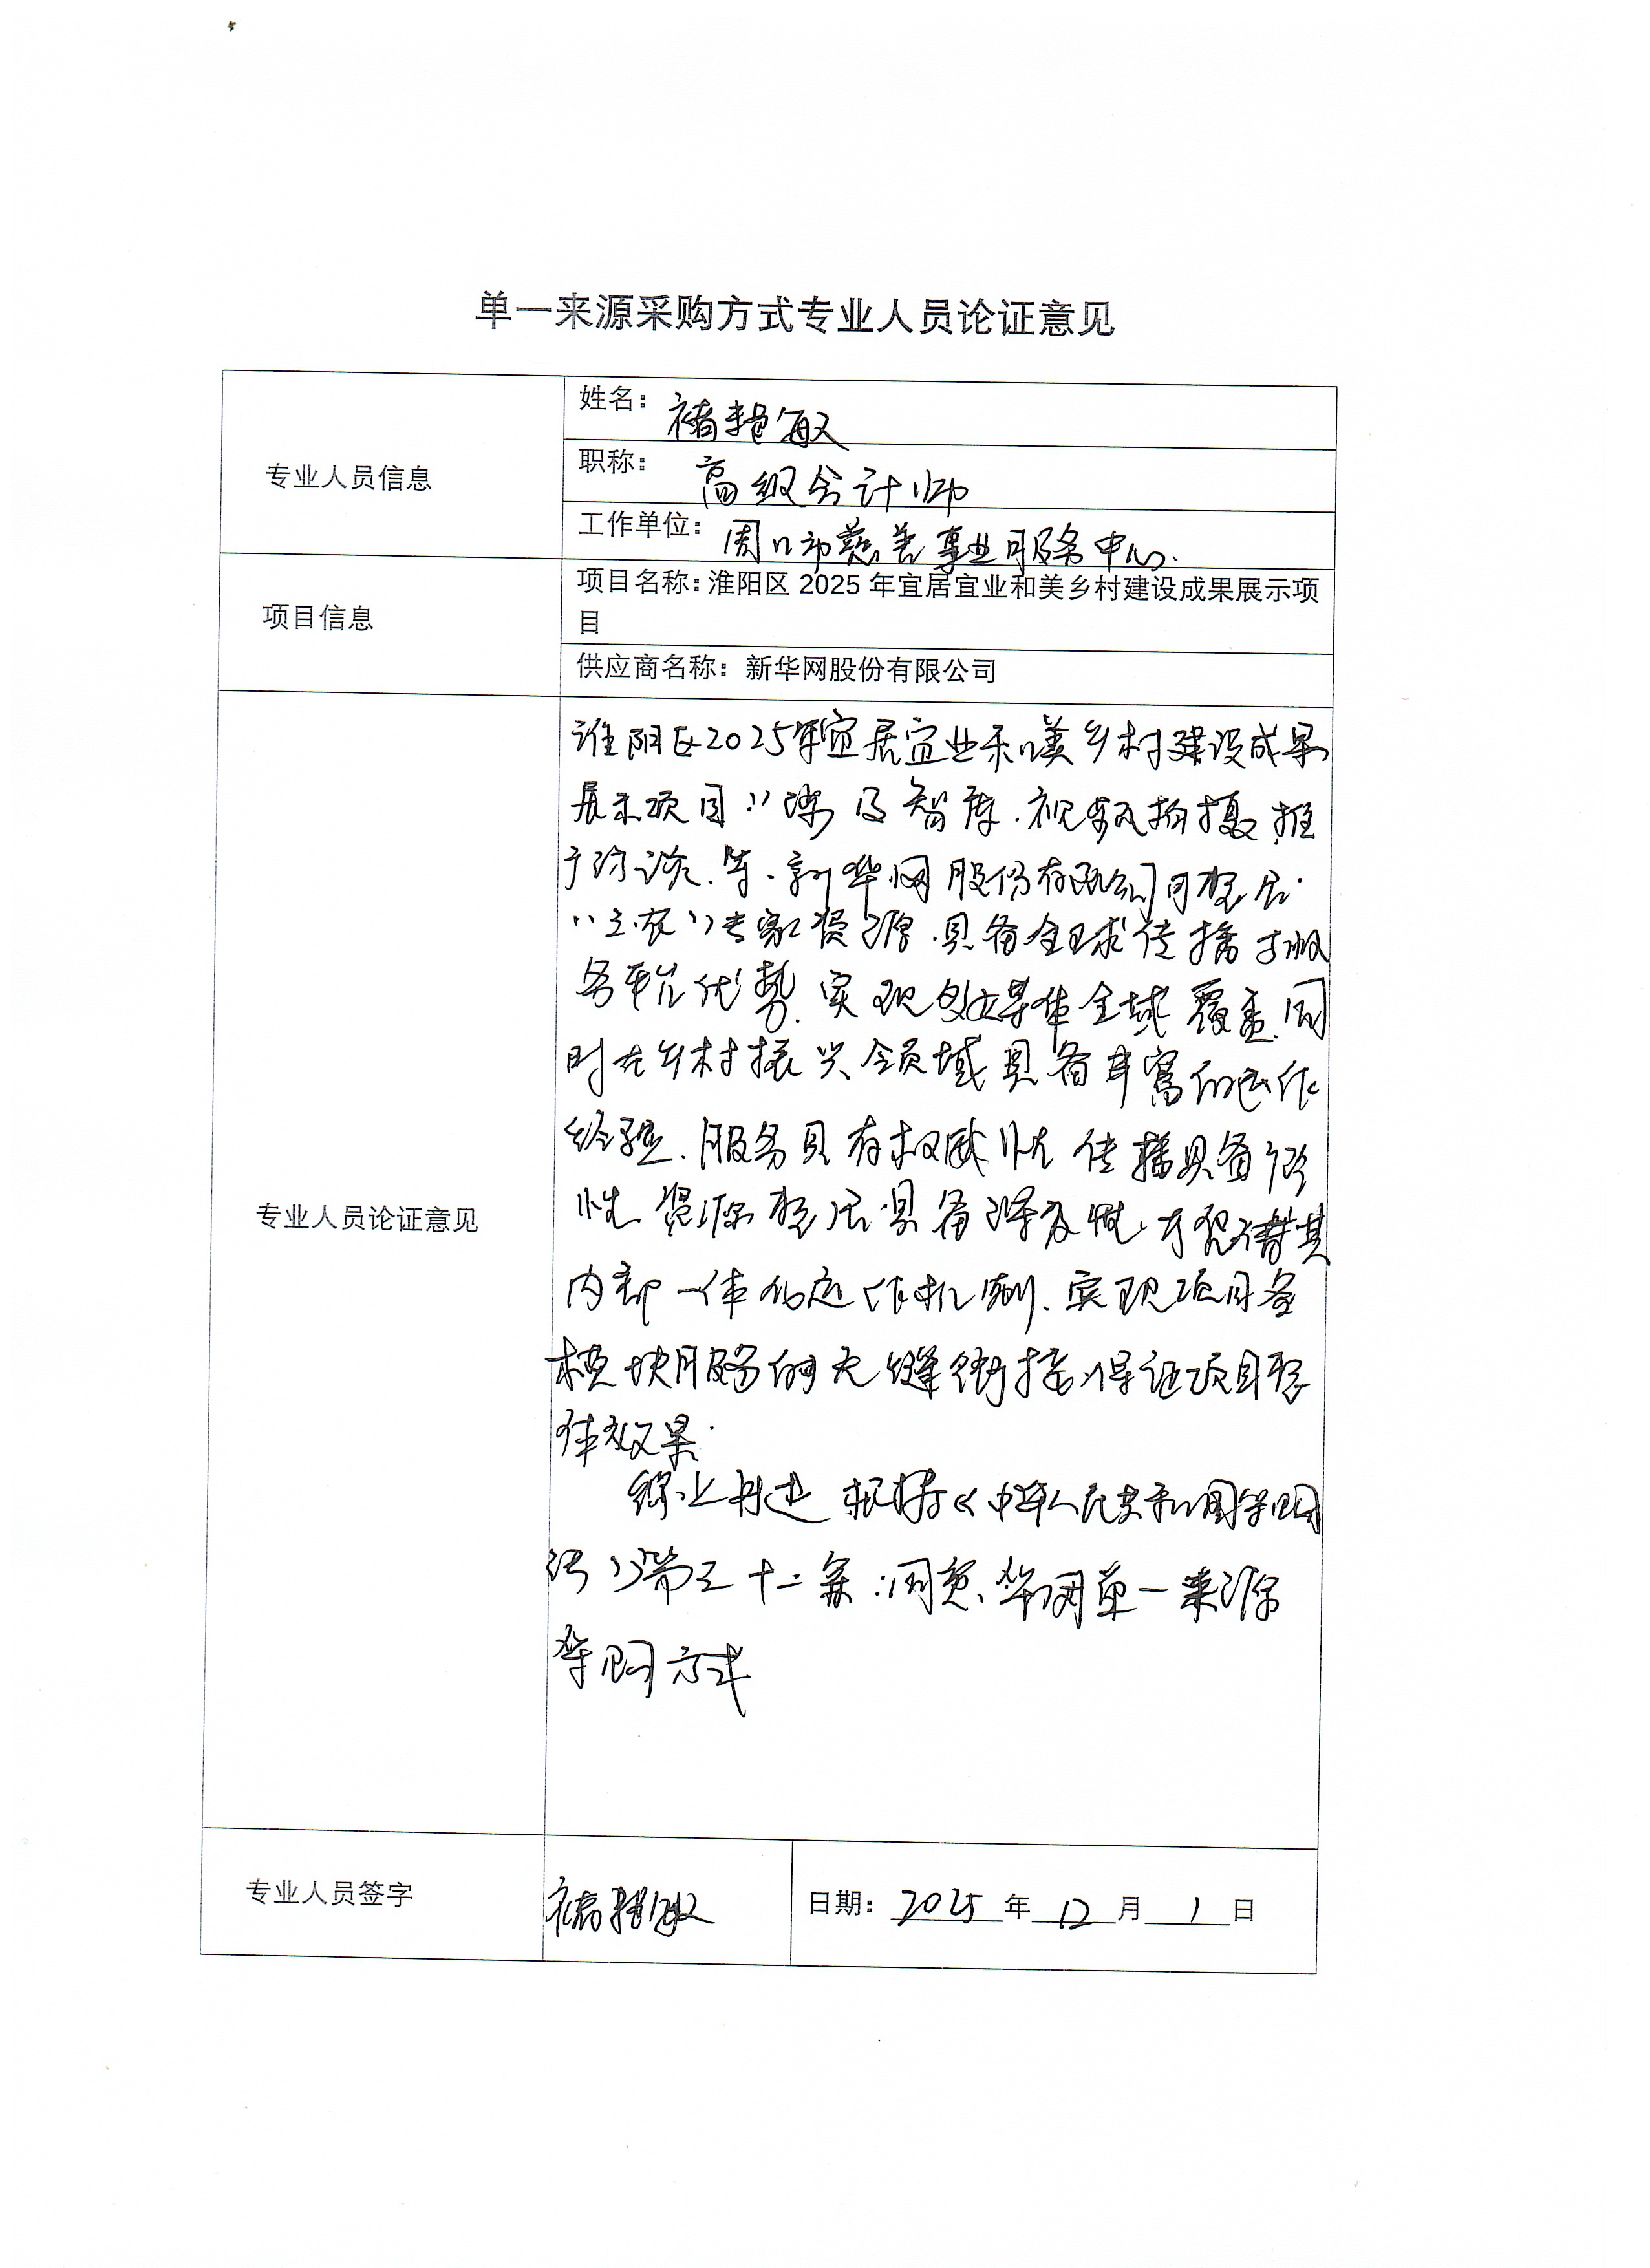 单一来源采购方式专业人员论证意见
专业人员信息
姓名：褚敏
职称：高级会计师
工作单位：周口市慈善事业服务中心.
项目信息
项目名称：淮阳区 2025 年宜居宜业和美乡村建设成果展示项
目
供应商名称：新华网股份有限公司
专业人员论证意见
淮阳区2025年宜居宜业和美乡村建设成果
展示项目”涉及智库.视频拍摄,推
广等.新华网股份有限公司可整合.
专家资源.具备全球传播
优势.实现媒体全域覆盖.同
时在乡村振兴领域具备丰富的运作
经验.服务具有权威性 传播具备
性 资源整合具备 其
内部一体化运作机制.实现项目各
模块服务的无缝衔接,保证项目整
体效果.
综上所述 根据《中华人民共和国采购
法》第三十二条:同意采用单一来源
采购方式
专业人员签字
褚敏
日期：2025年12月1日